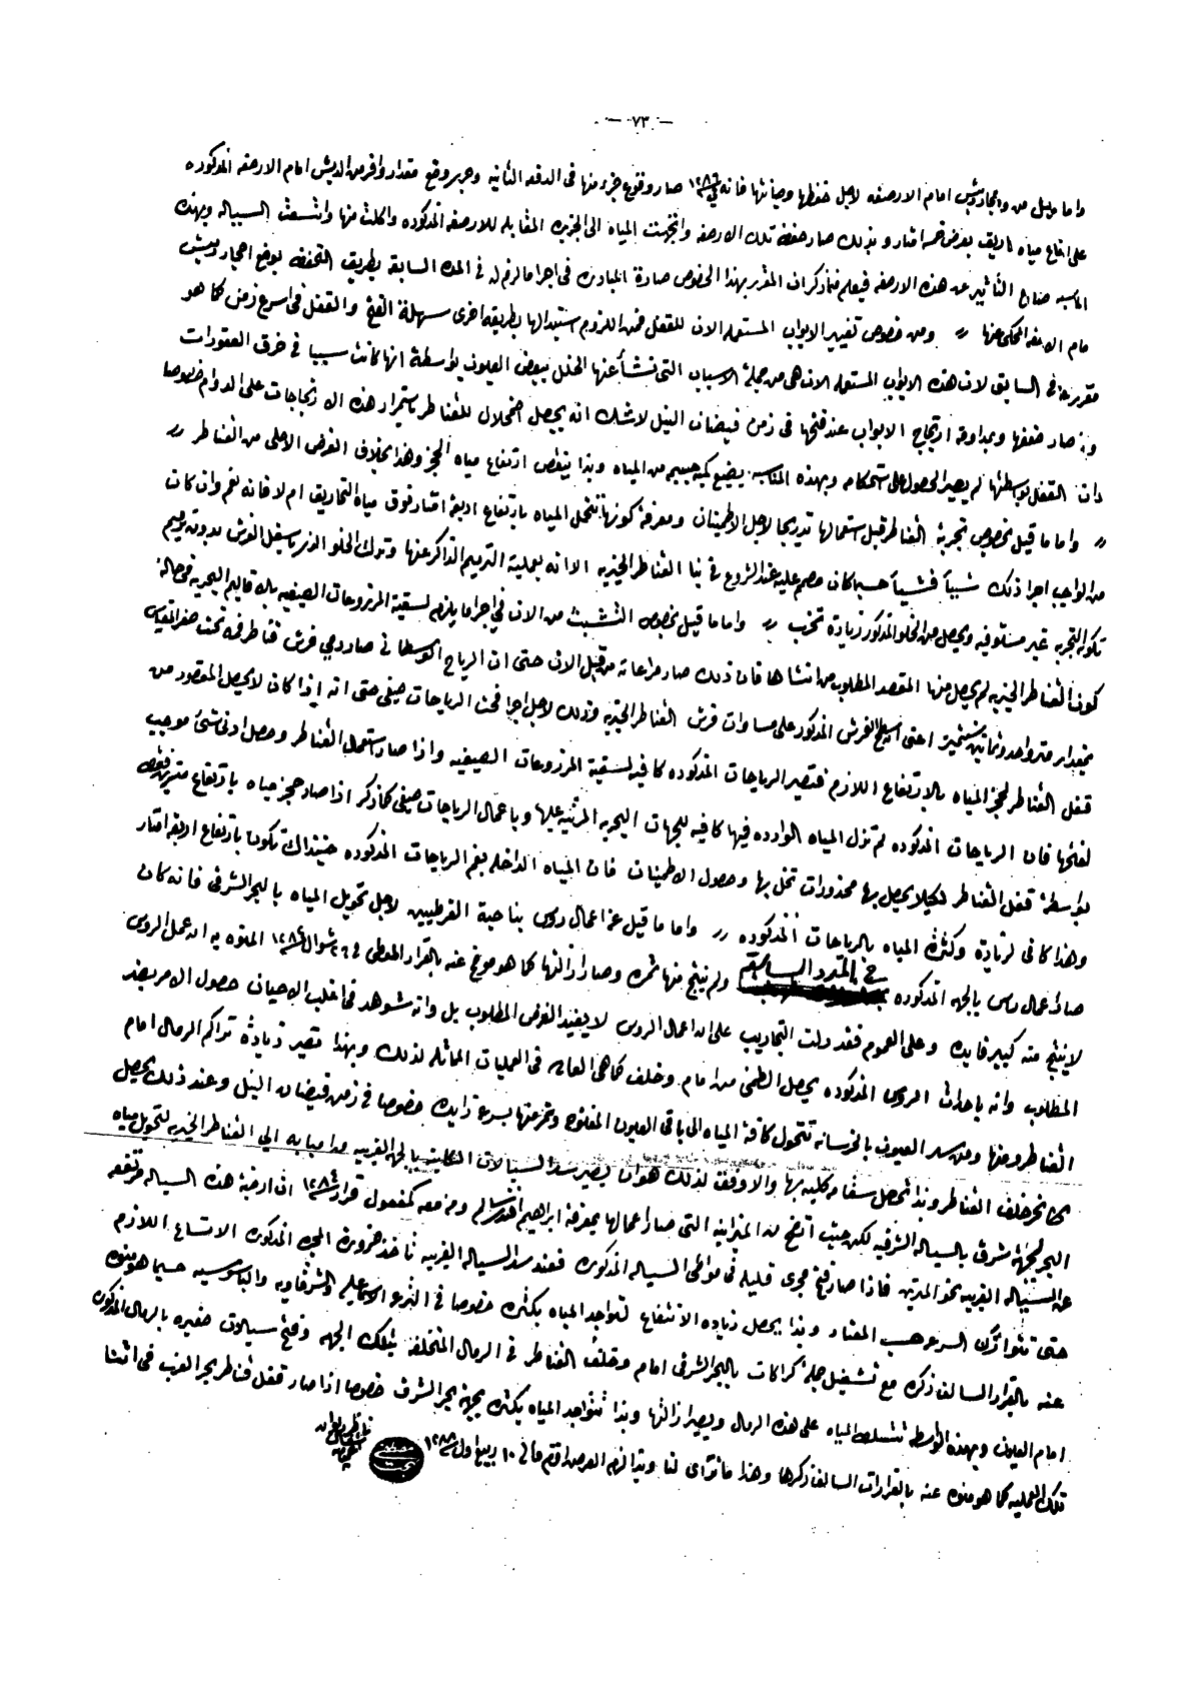 — ٧٣ —
واما ما قيل من وامجاد وبش امام الارصفه لاجل حفظها وصيانتها فانه في سنه ١٢٨٦ صار وقوع جزء منها فى الدفعه الثانيه وجر بوقع مقدار وافر من الدبش امام الارصفه المذكوره
على ايقاع مياه التحاريق بعرض خمسة امتار وبذلك صار حفظ تلك الارصفه واتجهت المياه الى الجزيره المقابله للارصفه المذكوره واكلت منها واتسعت السياله وبهذه
المناسبه ضاع التأثير عن هذه الارصفه فيعلم مما ذكر ان المقرر بهذا الخصوص صارة المبادره فى اجرا ما لزم له فى المده السابقه بطريق التحفظ بوضع احجار ودبش
امام الارصفه المحكى عنها // ومن خصوص تغيير الابواب المستعمله الان للقفل فمن اللزوم استبدالها بطريقه اخرى سهلة الفتح والقفل فى اسرع زمن كما هو
مقرر عنه فى السابق لان هذه الابواب المستعمله الان هى من جملة الاسباب التى نشأ عنها الخلل ببعض العيون بواسطة انها كانت سببا فى خرق العقودات
وبه صار ضعفها وبمداومة ارتجاج الابواب عند فتحها فى زمن فيضان النيل لاشك انه يحصل اضمحلال للقناطر باستمرار هذه الارتجاجات على الدوام خصوصا
وان القفل بواسطتها لم يصير الحصول على استحكامه وبهذه المناسبه يضيع كميه جسيمه من المياه وبذا ينقص ارتفاع مياه الحجز وهذا بخلاف الغرض الاصلى من القناطر //
// واما ما قيل بخصوص تجربة القناطر قبل استعمالها تدريجا لاجل الاطمينان ومعرفة كونها تتحمل المياه بارتفاع اربعة امتار فوق مياه التحاريق ام لا فانه نعم وان كان
من الواجب اجرا ذلك شيأ فشيأ حسبما كان مصمم عليه عند الشروع فى بنا القناطر الخيريه الا انه بعملية الترميم الذاكر عنها وترك الخلو الذى باسفل الفرش بدون ترميم
تكون التجربه غير مستوفيه ويحصل من الخلو المذكور زيادة تخرب // واما ما قيل بخصوص التشبث من الان فى اجرا ما يلزم لسقية المزروعات الصيفيه بالاقاليم البحريه فى حالة
كون القناطر الخيريه لم يحصل منها المقصد المطلوب من انشاها فان ذلك صار مراعاته من قبل الان حتى ان الرياح الوسطانى صار رمى فرش قناطر فمه تحت صفر المقياس
بمقدار متر واحد وثمانين سنتمتر اعنى سطح الفرش المذكور على مساوات فرش القناطر الخيريه وذلك لاجل اجرا فحت الرياحات صيفى حتى انه اذا كان لا يحصل المقصود من
قفل القناطر لحجز المياه بالارتفاع اللازم فتصير الرياحات المذكوره كافيه لسقية المزروعات الصيفيه واذا صار استعمال القناطر وحصل ادنى شئ موجب
لفتحها فان الرياحات المذكوره لم تزل المياه الوارده فيها كافيه للجهات البحريه المرتبه عليها وباعمال الرياحات صيفى كما ذكر اذا صار حجز مياه بارتفاع مترين فقط
بواسطة قفل القناطر لكيلا يحصل بها محذورات تخل بها وحصول الاطمينان فان المياه الداخله بفم الرياحات المذكوره حينئذ ان تكون بارتفاع اربعة امتار
وهذا كافى لزيادة وكثرة المياه بالرياحات المذكوره // واما ما قيل عن اعمال روس بناحية القرطيين لاجل تحويل المياه بالبحر الشرقى فانه كان
صار اعمال روس بالجهه المذكوره فى المدد السابقه ولم ينتج منها ثمره وصار ازالتها كما هو موضح عنه بالقرار المعطى فى ٢٦ شوال سنه ١٢٨٦ المنوه به ان عمل الروس
لا ينتج منه كبير فايده وعلى العموم فقد دلت التجاريب على ان اعمال الروس لا يفيد الغرض المطلوب بل وانه شوهد فى اغلب الاحيان حصول الامر بضد
المطلوب وانه باحداث الروس المذكوره يحصل الطمى من امام وخلف كما هى العاده فى العمليات المماثله لذلك وبهذا تصير زيادة تراكم الرمال امام
القناطر ومنها ومن سد العيون بالخرسانه تتحول كافة المياه الى باقى العيون المفتوحه وتمر منها بسرعه زايده خصوصا فى زمن فيضان النيل وعند ذلك يحصل
نحر خلف القناطر وبذا تحصل سقامه كليه بها والاوفق لذلك هو ان يصير سد السيالات الكاينه بالجهه الغربيه من امبابه الى القناطر الخيريه لتحويل مياه
البحر لجهة شرق بالسياله الشرقيه لكن حيث اتضح من الميزانيه التى صار اعمالها بمعرفة ابراهيم افندى سالم ومن معه كمفعول قرار سنه ١٢٨٦ ان ارضية هذه السياله مرتفعه
عن السياله الغربيه نحو المترين فاذا صار فتح مجرى قليله فى مواطى السياله المذكوره فعند سد السياله الغربيه تاخذ ضرورة المجرى المذكوره الاتساع اللازم
حتى تتوازن السرعه حسب المعتاد وبذا يحصل زياده الانتفاع لتواجد المياه بكثره خصوصا فى الترع الاسماعيليه والشرقاويه والباسوسيه حسبما هو منوه
عنه بالقرار السالف ذكره مع تشغيل جملة كراكات بالبحر الشرقى امام وخلف القناطر فى الرمال المتخلفه بتلك الجهه وفتح سيالات صغيره بالرمال المذكوره
امام العيون وبهذه الواسطه تتسلط المياه على هذه الرمال ويصير ازالتها وبذا تتواجد المياه بكثره بجهة بحر الشرق خصوصا اذا صار قفل قناطر بحر الغرب فى اثنا
تلك العمليه كما هو منوه عنه بالقرارات السالف ذكرها وهذا ما ترآى لنا وبدا لزم العرض افندم فى ١٠ ربيع اول سنه ١٢٨٨
ناظر ديوان
بهجت